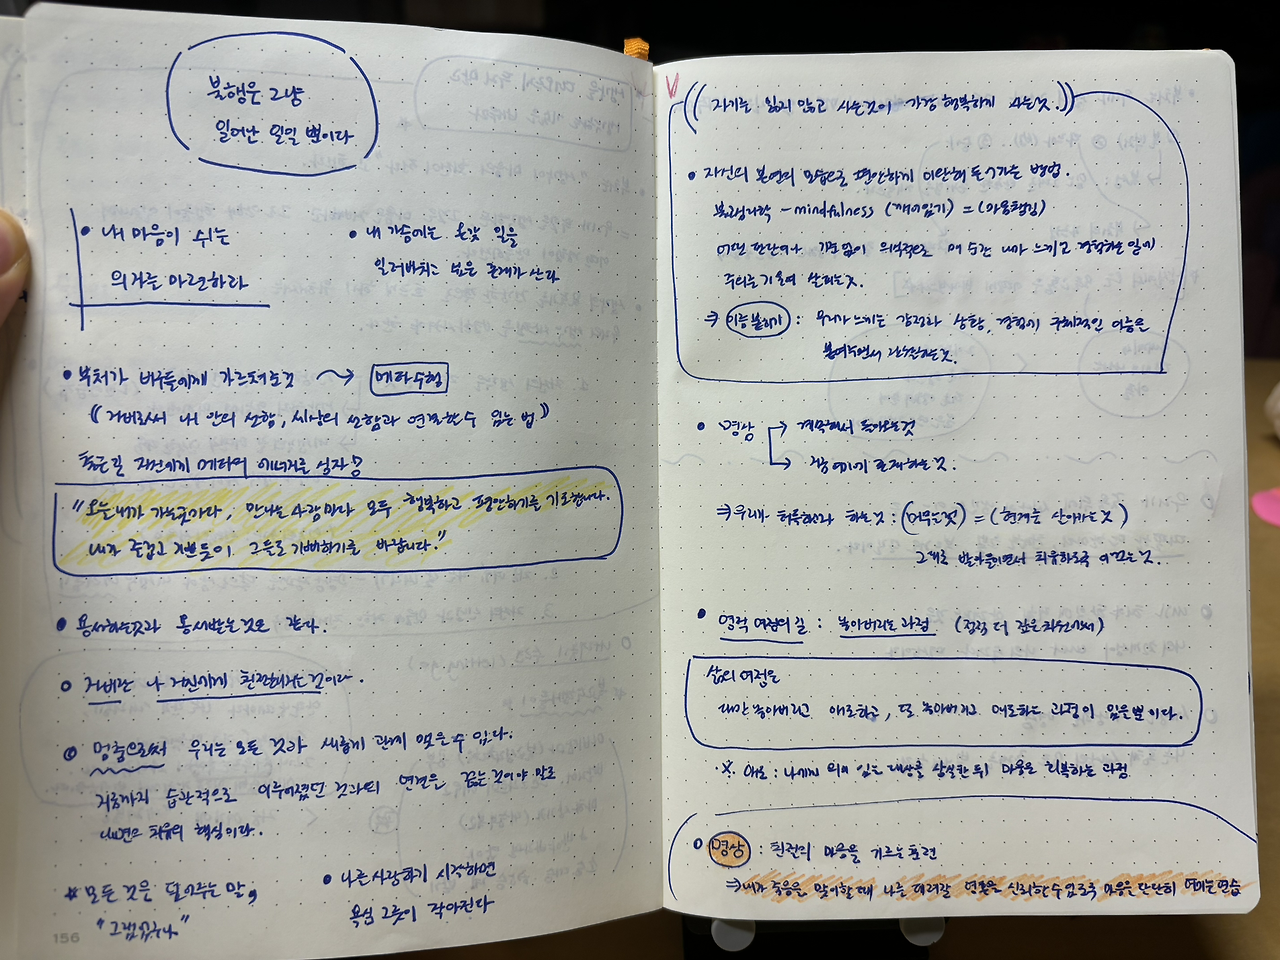 불행은 그냥
일어난 일일 뿐이다
• 내 마음이 쉬는
의자를 마련하라
• 내 가슴에는 온갖 일을
일러바치고 싶은 존재가 산다
• 부처가 비구들에게 가르쳐준것 → 메타수행
《자비로써 내 안의 선함, 세상의 선함과 연결할 수 있는 법》
출근길 자신에게 메타의 에너지를 심자!
"오늘 내가 가는곳마다, 만나는 사람마다 모두 행복하고 평안하기를 기도합니다.
내가 즐겁고 기쁘듯이 그들도 기뻐하기를 바랍니다."
• 용서하는것과 용서받는것은 같다.
○ 자비란 나 자신에게 친절해지는 것이다.
◎ 멈춤으로써 우리는 모든 것과 새롭게 관계 맺을 수 있다.
지금까지 습관적으로 이루어졌던 것과의 연결을 끊는것이야 말로
내면의 치유의 핵심이다.
* 모든 것을 덜어주는 말,
"그렇구나"
• 나를 사랑하기 시작하면
욕심 그릇이 작아진다
156
V
((자기를 잃지 않고 사는것이 가장 행복하게 사는것.))
• 자신의 본연의 모습으로 편안하게 이완해 들어가는 방법.
불교심리학 - mindfulness (깨어있기) = (마음챙김)
어떤 판단이나 기준없이 의식적으로 매 순간 내가 느끼고 경험하는 일에
주의를 기울여 살피는것.
⇒ 이름붙이기 : 우리가 느끼는 감정과 상황, 경험에 구체적인 이름을
붙여주면서 관찰하는것.
• 명상 → 계속해서 돌아오는것
→ 지금 여기에 존재하는것.
⇒ 우리가 허락해야 하는것 : (머무는것) = (현재를 살아가는것)
그대로 받아들이면서 치유하도록 이끄는것.
• 영적 여정의 길 : 놓아버리는 과정 (점점 더 깊은 차원에서)
삶의 여정은
다만 놓아버리고 애도하고, 또 놓아버리고 애도하는 과정이 있을뿐이다.
※ 애도 : 나에게 의미 있는 대상을 상실한 뒤 마음을 회복하는 과정
○ 명상 : 친절의 마음을 기르는 훈련
⇒ 내가 죽음을 맞이할 때 나를 데려갈 영혼을 신뢰할 수 있도록 마음을 단단히 여미는 연습